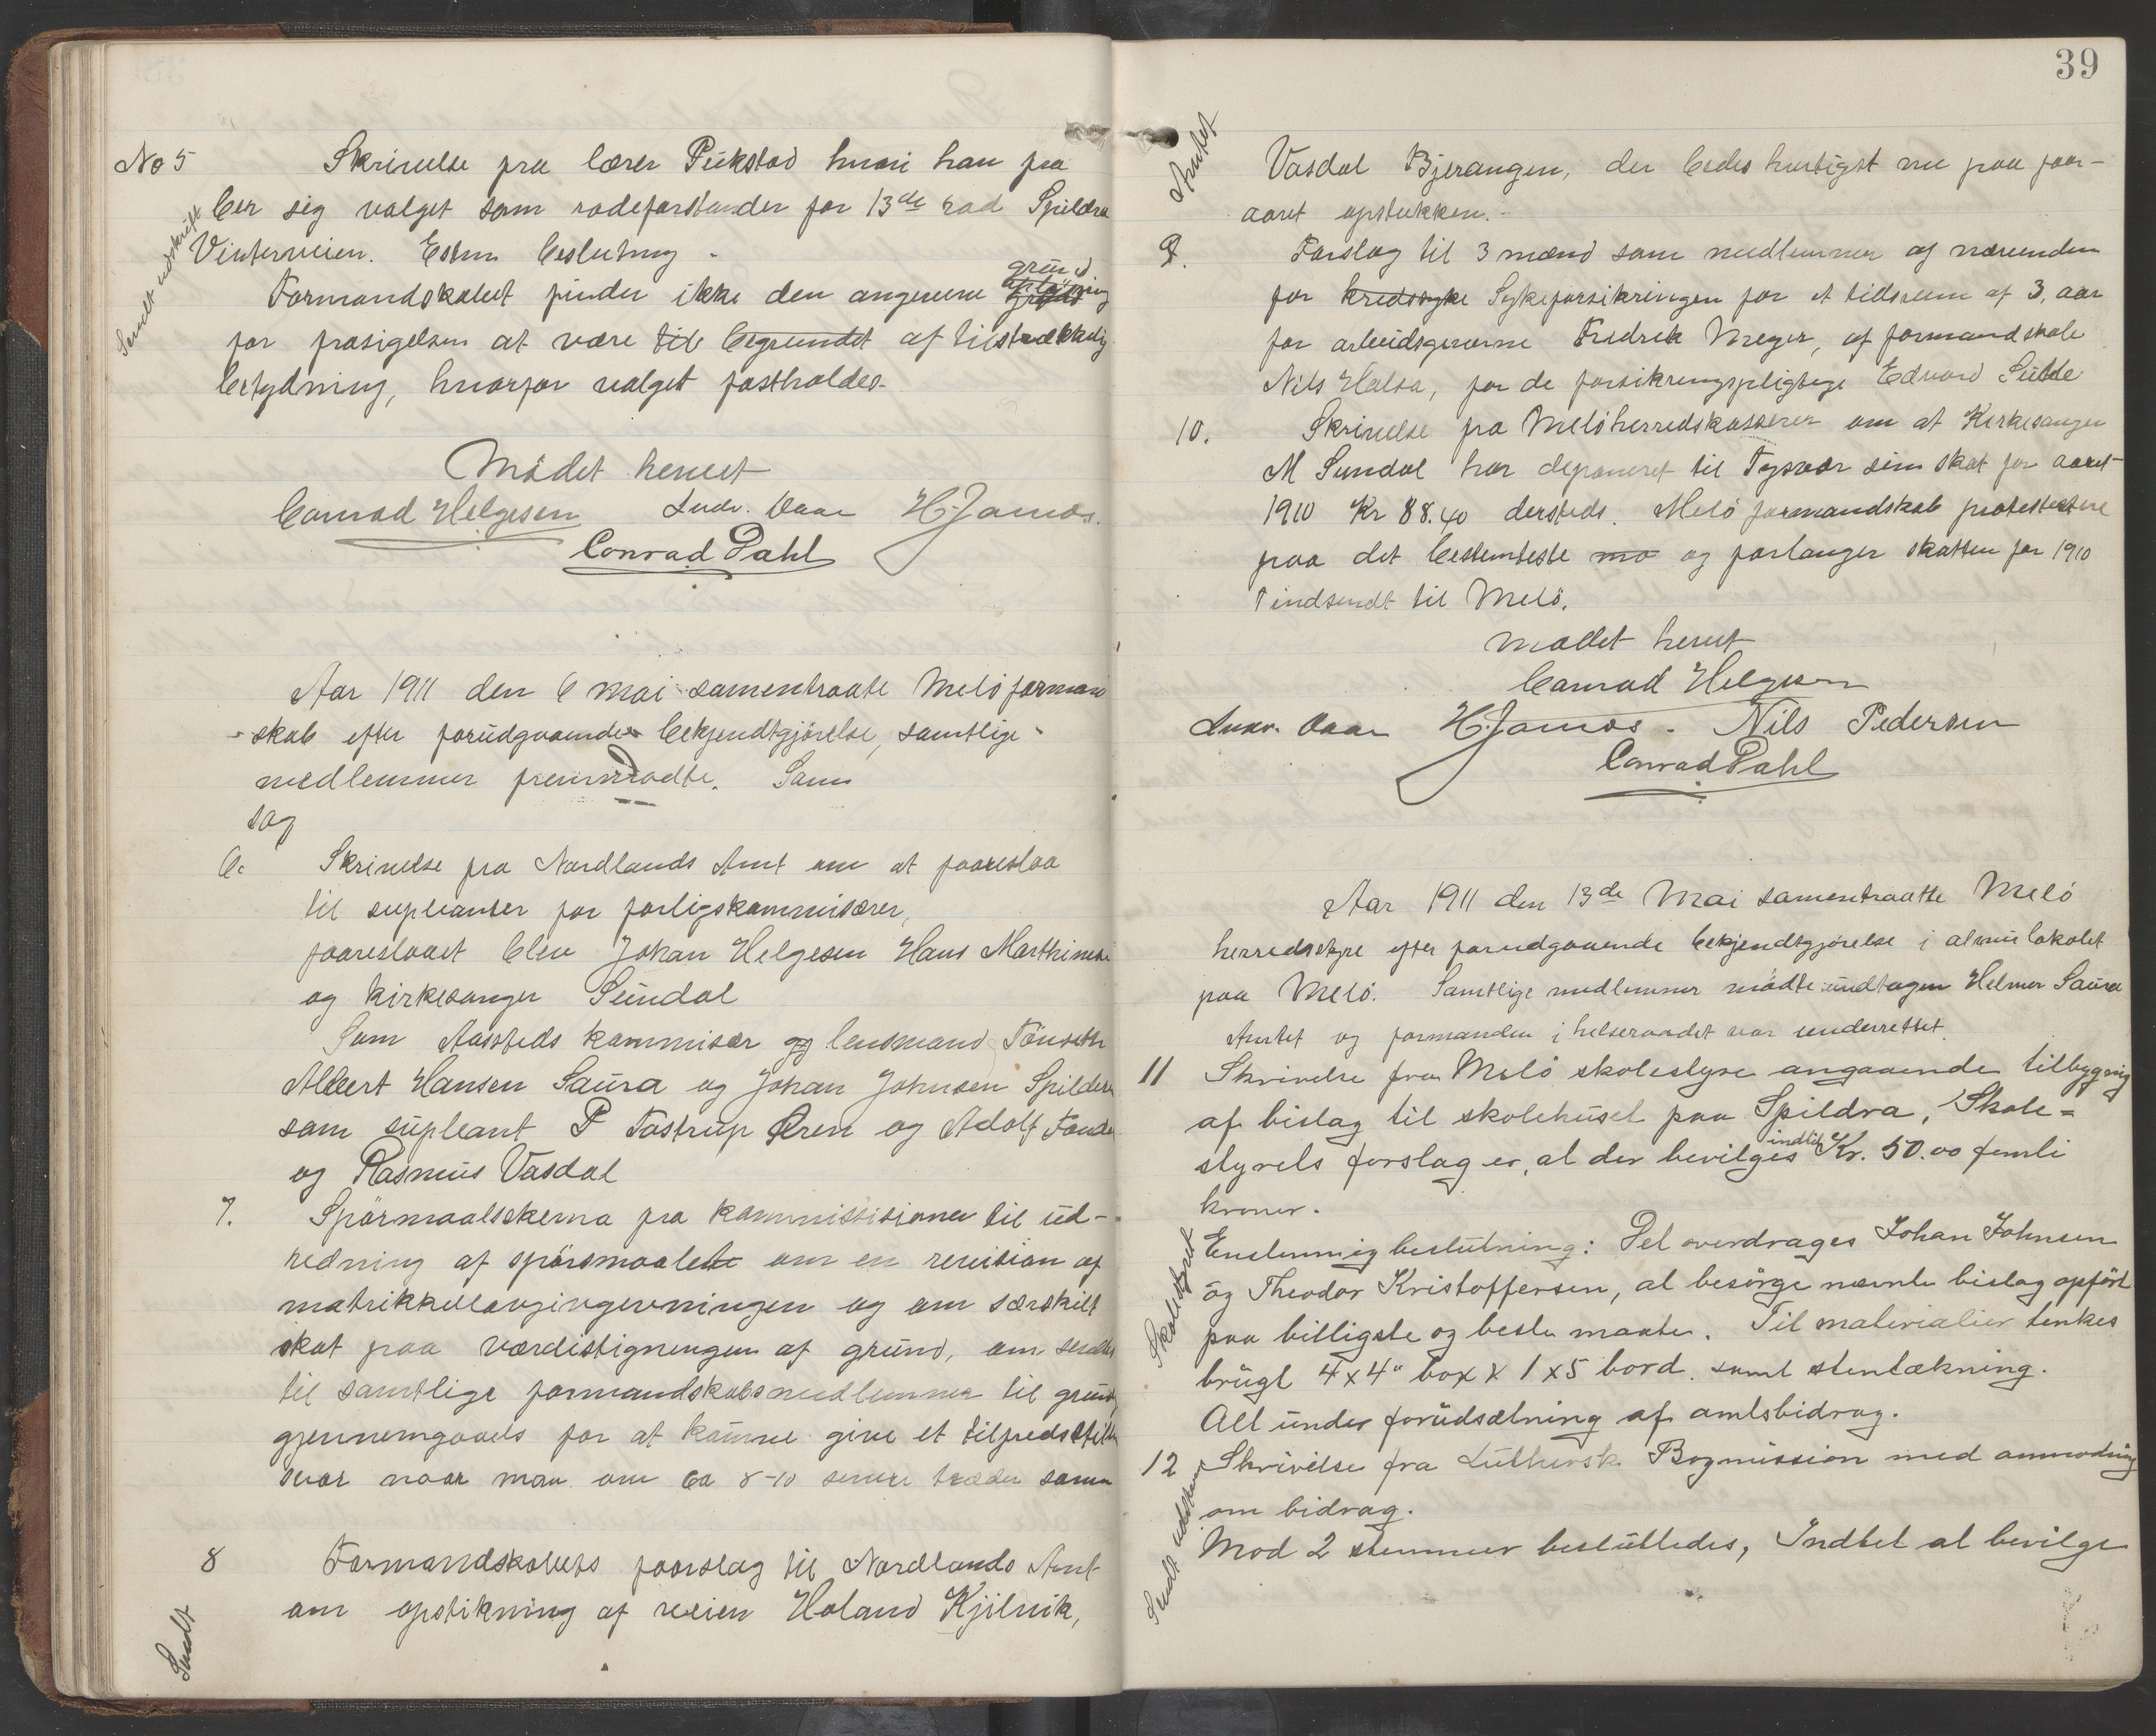 No 5 Skrivelse fra lærer Pukstad hvori han fra
ber sig valget som rodeforstander for 13de rod Spildra
Vinterveien. Estm beslutning.
Sendt udskrift
Formandskabet finder ikke den angivne grund
for frasigelsen at være til begrundet af tilstrækkelig
betydning, hvorfor valget fastholdes.
Mødet hevet
Conrad Helgesen Ludv. Vaar H. Jamos.
Conrad Dahl
Aar 1911 den 6 mai samentraate Melö forman
skab efter forudgaaende bekjendtgjörelse, samtlige
medlemmer fremmödte. Som
sag
6. Skrivelse fra Nordlands Amt om at foareslaa
til supleanter for forligskommisærer,
foareslaaet blev Johan Helgesen Hans Marthinsen
og kirkesanger Sundal
Som Aasteds kommisær og lensmand Tönseth
Albert Hansen Saura og Johan Johnsen Spildra
som supleant P Tostrup Ören og Adolf
og Rasmus Vasdal
7. Spörmaalsskema fra kommissisionen til ud-
redning af spörsmaalet om en revision af
matrikkellovgivgevningen og om særskilt
skat paa værdistigningen af grund, om sendes
til samtlige formandskabsmedlemmer til grund
gjennemgaaels for at kunne give et tilfredsstill
svar naar man om ca 8-10 senere træder samm
8 Formandskabets foorslag til Nordlands Amt
om opstikning af veien Holand Kjilvik,
Sendt
39
Amtet
Vasdal Bjerangen, der bedes hurtigst nu paa foor-
aaret opstukken.
9. Forslag til 3 mænd som medlemmer af nævnden
for kredssyke Sykeforsikringen for et tidsrum af 3, aar
for arbeidsgiverne Fredrik Meyer, af formandskab
Nils Halsa, for de forsikringspligtige Edvard
10. Skrivelse fra Melöherredskasserer om at Kirkesanger
M Sundal har deponeret til Tysvær sin skat for aaret
1910 Kr 88.40 dersteds. Melö formandskab protestestere
paa det bestemteste mo og forlanger skatten for 1910
indsendt til Melö.
mödet hevet
Conrad Helgesen
Ludv. Vaar H. Jamos. Nils Pedersen
Conrad Dahl
Aar 1911 den 13de Mai samentraatte Melö
herredsstyre efter forudgaaende bekjendtgjörelse i almuelokalet
paa Melö. Samtlige medlemmer mödte undtagen Helmer Saura
Amtet og formanden i helseraadet var underrettet.
11 Skrivelse fra Melö skolestyre angaaende tilbygning
af bislag til skolehuset paa Spildra, Skole=
styrels forslag er, at der bevilges indtil Kr. 50.00 femti
kroner.
Skolestyret
Enstemmig beslutning: Det overdrages Johan Johnsen
og Theodor Kristoffersen, at besörge nævnte bislag opfört
paa billigste og beste maate. Til materialier tenkes
brugt 4 x 4" box & 1 x 5 bord. samt stentækning.
Alt under forudsætning af amtsbidrag.
12 Skrivelse fra Luthersk Bogmission med anmodning
om bidrag.
Sendt udskrift
Mod 2 stemmer besluttedes, Indtet at bevilge